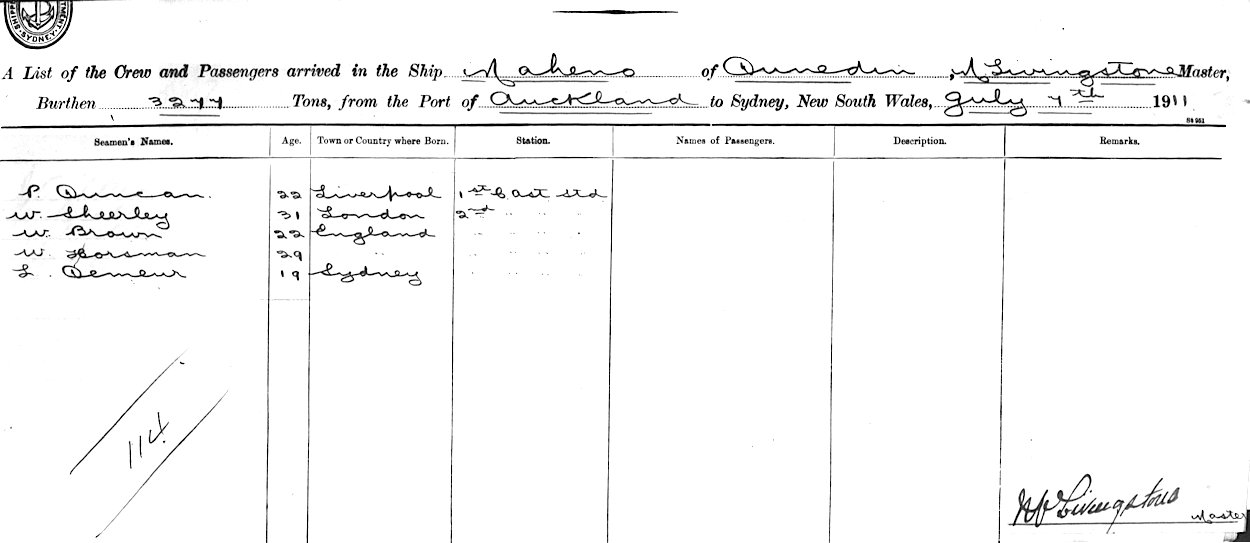 SHIPP TMENT. SYDNEY.
A List of the Crew and Passengers arrived in the Ship Maheno of Dunedin, Livingstone Master,
Burthen 3277 Tons, from the Port of Auckland to Sydney, New South Wales, July 7th 1911
Seamen's Names. Age. Town or Country where Born. Station. Names of Passengers. Description. Remarks.
P. Duncan. 22 Liverpool 1st Cast Std
W. Sheerley 31 London 2nd " " "
W. Brown 22 England " " "
W. Horsman 29 " " " "
L. Demeur 19 Sydney " " "
114
Livingstone
Master